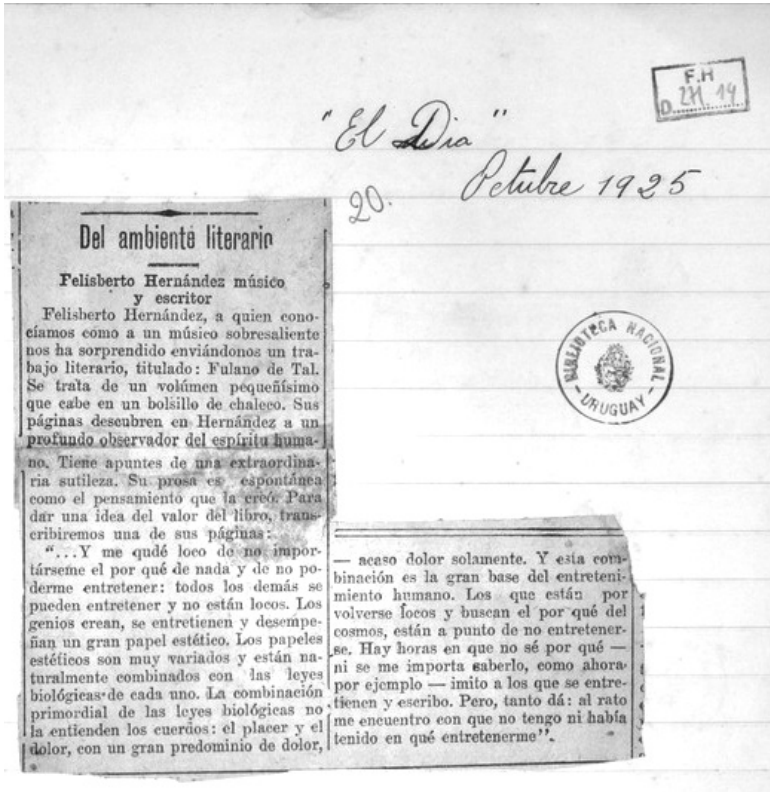 F.H
D. 271.14
"El Dia"
Octubre 1925
20.
Del ambiente literario
Felisberto Hernández músico
y escritor
Felisberto Hernández, a quien cono-
cíamos como a un músico sobresaliente
nos ha sorprendido enviándonos un tra-
bajo literario, titulado: Fulano de Tal.
Se trata de un volúmen pequeñísimo
que cabe en un bolsillo de chaleco. Sus
páginas descubren en Hernández a un
profundo observador del espíritu huma-
no. Tiene apuntes de una extraordina-
ria sutileza. Su prosa es espontánea
como el pensamiento que la creó. Para
dar una idea del valor del libro, trans-
cribiremos una de sus páginas:
"...Y me qudé loco de no impor-
társeme el por qué de nada y de no po-
derme entretener: todos los demás se
pueden entretener y no están locos. Los
genios crean, se entretienen y desempe-
ñan un gran papel estético. Los papeles
estéticos son muy variados y están na-
turalmente combinados con las leyes
biológicas de cada uno. La combinación
primordial de las leyes biológicas no
la entienden los cuerdos: el placer y el
dolor, con un gran predominio de dolor,
— acaso dolor solamente. Y esta com-
binación es la gran base del entreteni-
miento humano. Los que están por
volverse locos y buscan el por qué del
cosmos, están a punto de no entretener-
se. Hay horas en que no sé por qué —
ni se me importa saberlo, como ahora
por ejemplo — imito a los que se entre-
tienen y escribo. Pero, tanto dá: al rato
me encuentro con que no tengo ni había
tenido en qué entretenerme".
BIBLIOTECA NACIONAL
- URUGUAY -